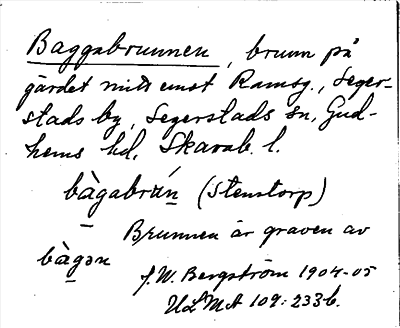 Baggabrunnen, brunn på
gärdet mitt emot Ramsg., Seger-
stads by, Segerstads sn, Gud-
hems hd, Skarab. l.
bàgabrùn (Stenstorp)
Brunnen är graven av
bàgən
J. W. Bergström 1904-05
ULMA 109:233 b.